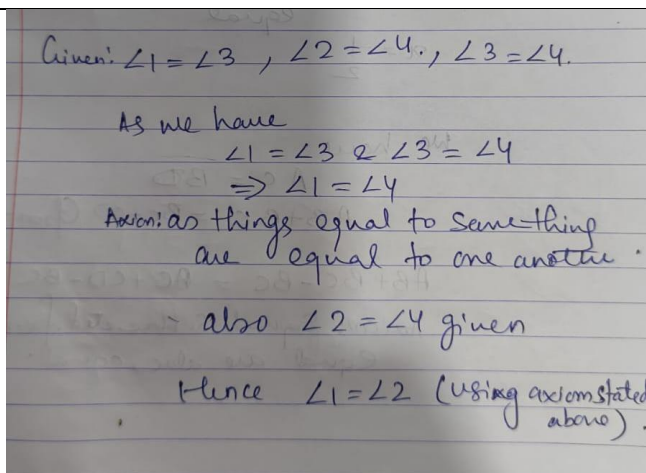 Given: ∠1 = ∠3 , ∠2 = ∠4. , ∠3 = ∠4.
As we have
∠1 = ∠3 & ∠3 = ∠4
=> ∠1 = ∠4
Axiom: as things equal to same thing
are equal to one another.
also ∠2 = ∠4 given
Hence ∠1 = ∠2 (using axiom stated
above).